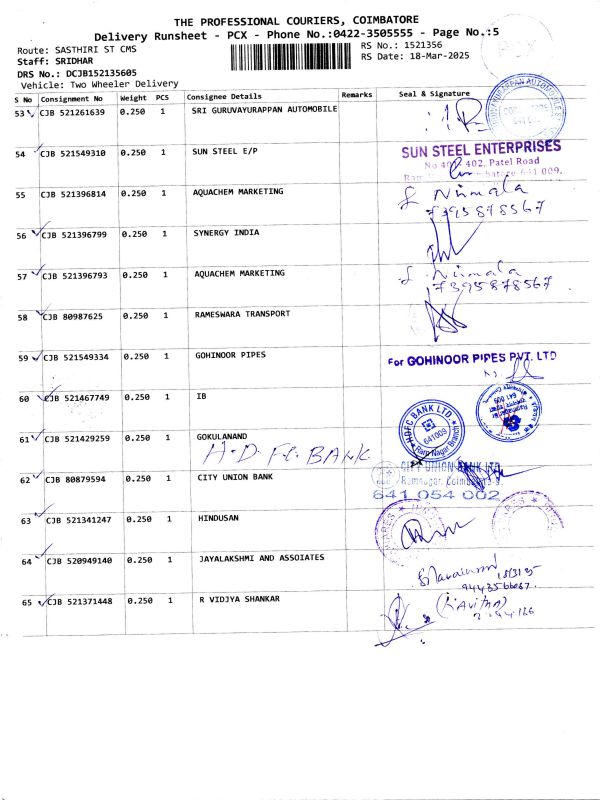 THE PROFESSIONAL COURIERS, COIMBATORE
Delivery Runsheet - PCX - Phone No.:0422-3505555 - Page No.:5
Route: SASTHIRI ST CMS
RS No.: 1521356
Staff: SRIDHAR
RS Date: 18-Mar-2025
DRS No.: DCJB152135605
Vehicle: Two Wheeler Delivery
PCX
S No Consignment No Weight PCS Consignee Details Remarks Seal & Signature
53 CJB 521261639 0.250 1 SRI GURUVAYURAPPAN AUTOMOBILE
54 CJB 521549310 0.250 1 SUN STEEL E/P
SUN STEEL ENTERPRISES
402, Patel Road
641 009.
55 CJB 521396814 0.250 1 AQUACHEM MARKETING
Nirmala
7395878567
56 CJB 521396799 0.250 1 SYNERGY INDIA
57 CJB 521396793 0.250 1 AQUACHEM MARKETING
Nirmala
7395878567
58 CJB 80987625 0.250 1 RAMESWARA TRANSPORT
59 CJB 521549334 0.250 1 GOHINOOR PIPES
For GOHINOOR PIPES PVT. LTD
60 CJB 521467749 0.250 1 IB
61 CJB 521429259 0.250 1 GOKULANAND
H.D.F.C. BANK
HDFC BANK LTD.
641009
Ram Nagar Branch
62 CJB 80879594 0.250 1 CITY UNION BANK
CITY UNION BANK LTD.
Ramnagar, Coimbatore-9.
641 054 002
63 CJB 521341247 0.250 1 HINDUSAN
64 CJB 520949140 0.250 1 JAYALAKSHMI AND ASSOIATES
18/3/25
65 CJB 521371448 0.250 1 R VIDJYA SHANKAR
(Kavitha)